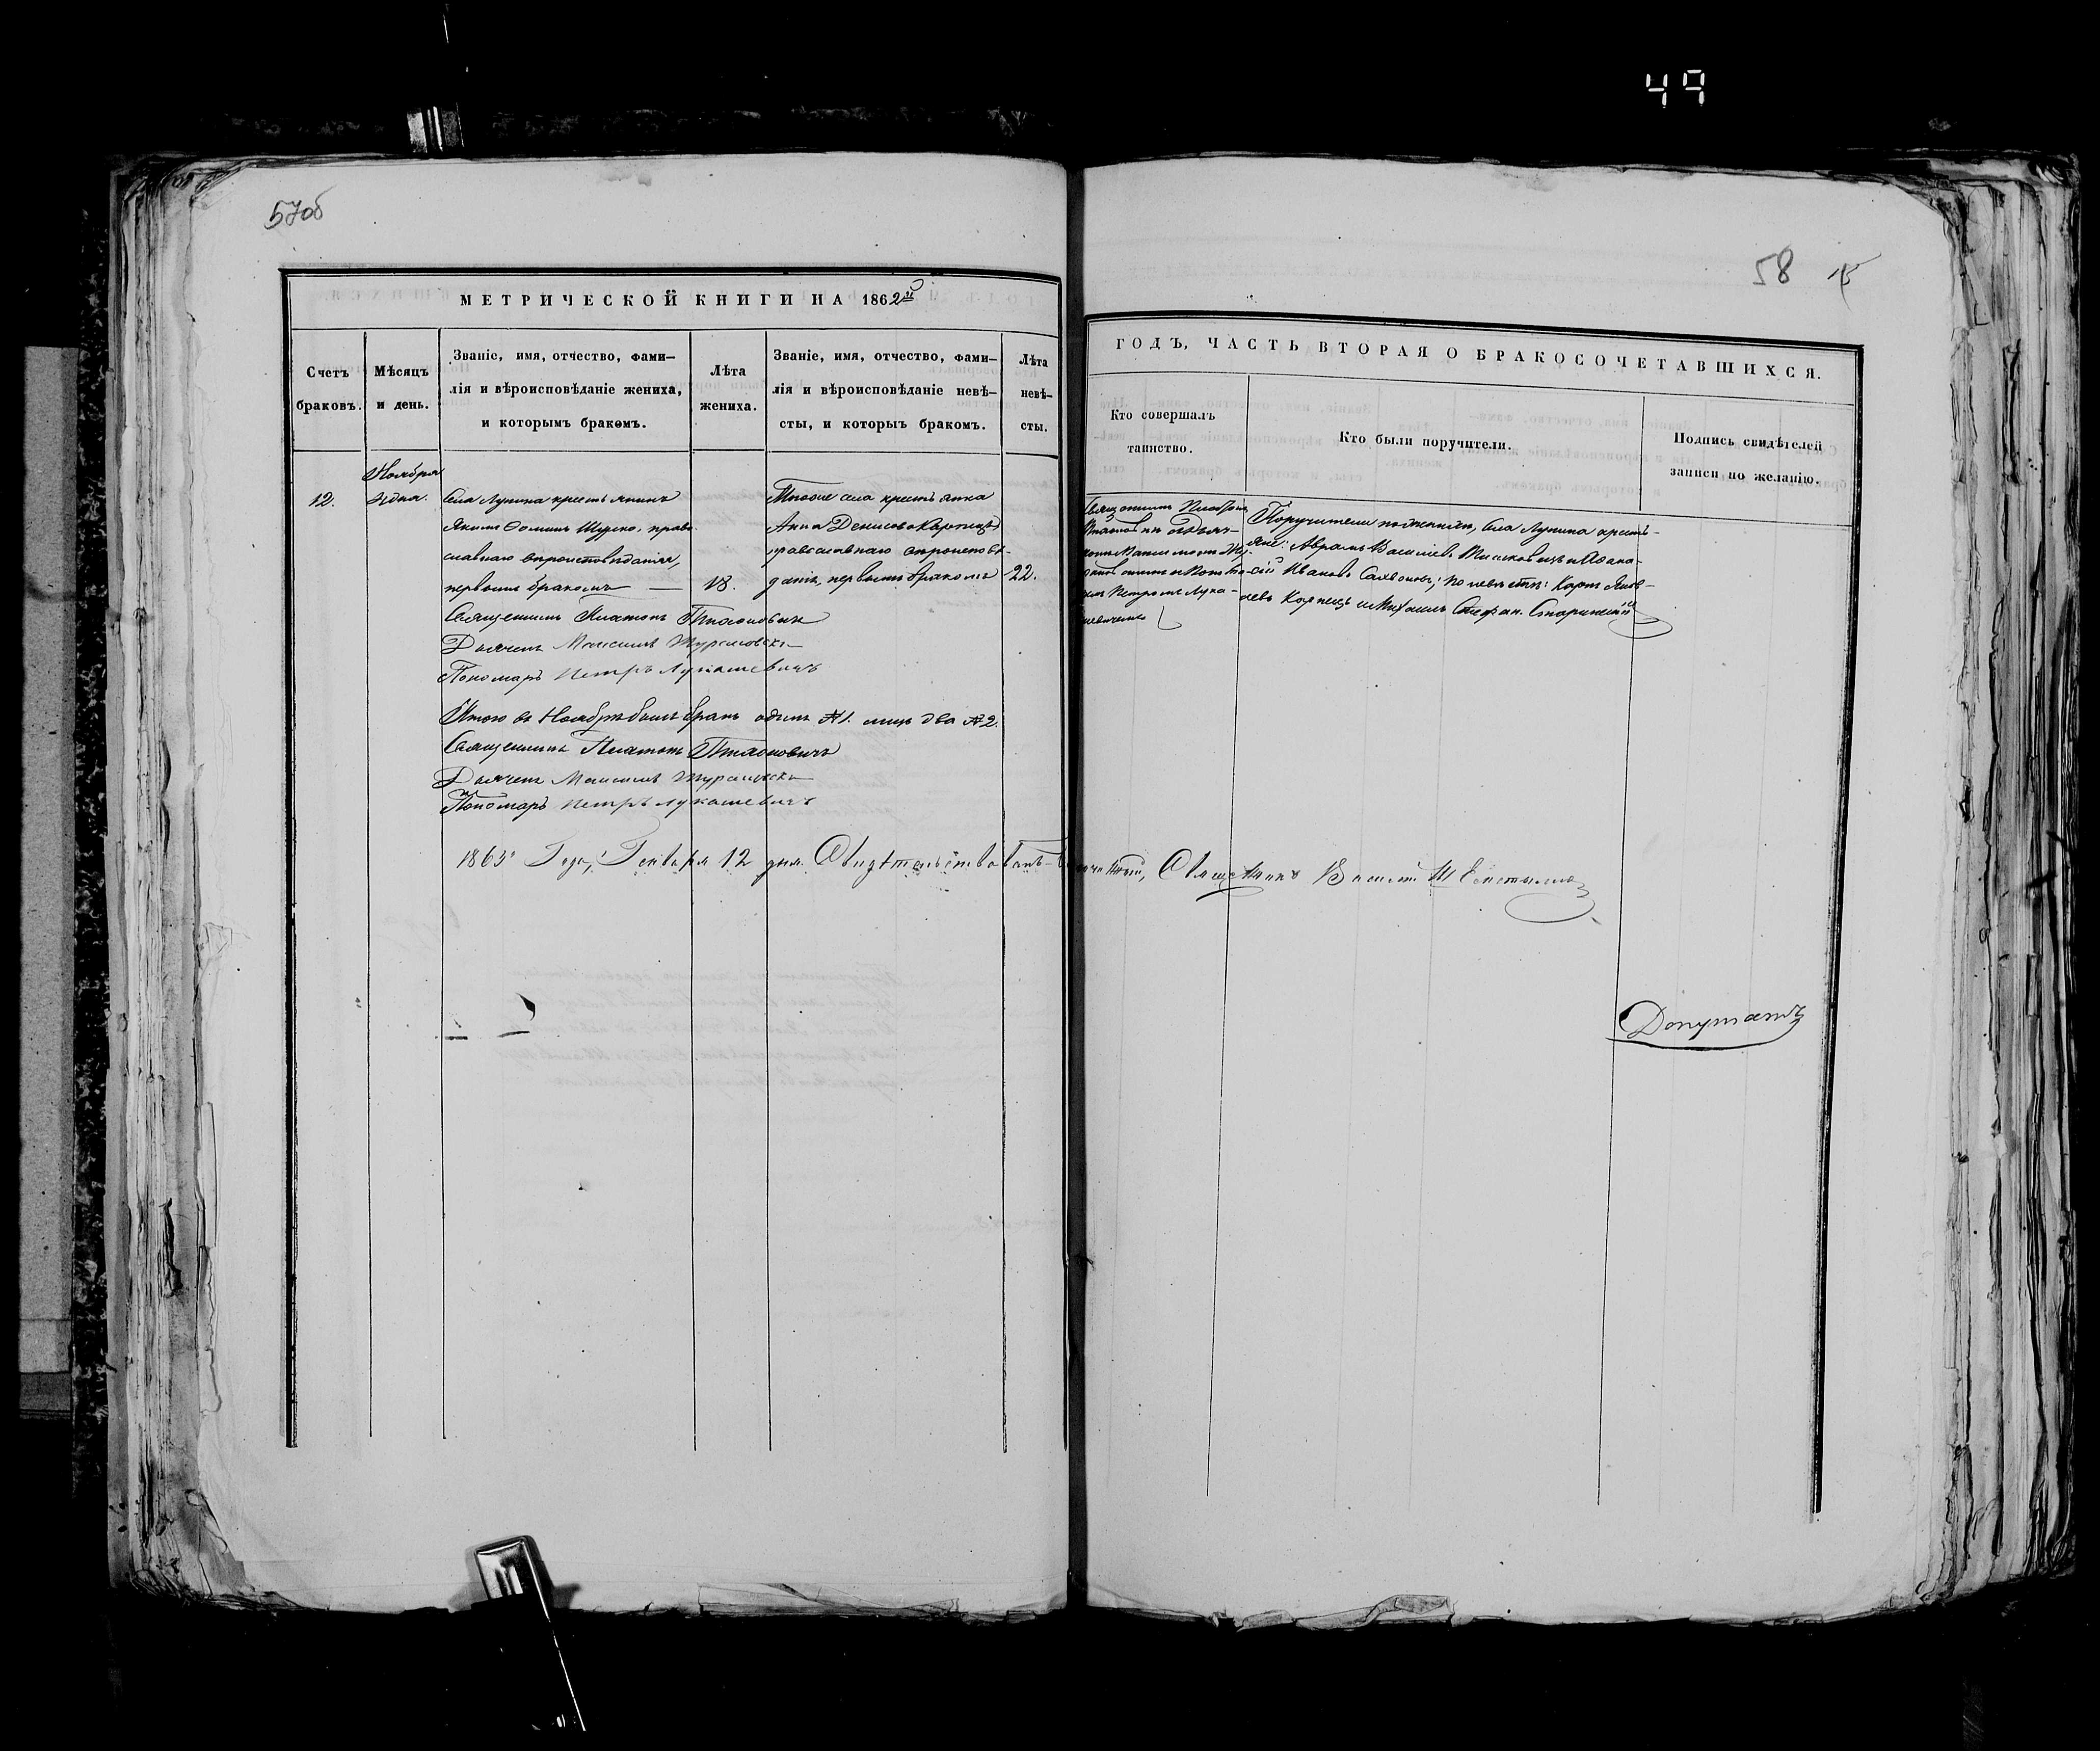 49
57об
58 15
МЕТРИЧЕСКОЙ КНИГИ НА 1862й
Счетъ
браковъ.
Мѣсяцъ
и день.
Званіе, имя, отчество, фами–
лія и вѣроисповѣданіе жениха,
и которымъ бракомъ.
Лѣта
жениха.
Званіе, имя, отчество, фами–
лія и вѣроисповѣданіе невѣ–
сты, и которыъ бракомъ.
Лѣта
невѣ–
сты.
12.
Ноября
дня.
Села Лупина крестьянинъ
Якимъ Ѳоминъ Шурко, право
славнаго вѣроисповѣданія,
первымъ бракомъ —
18.
Тогоже села крестьянка
Анна Денисова Карпецъ
православнаго вѣроисповѣ–
данія, первымъ бракомъ
22.
Священникъ Платонъ
Дьячекъ Максимъ
Пономарь Петръ Лукашевичъ
Итого въ Ноябрѣ былъ бракъ одинъ №1. лицъ два №2.
Священникъ Платонъ
Дьячекъ Максимъ
Пономарь Петръ Лукашевичъ
1863 Года, Генваря 12 дня. Свидѣтельствовалъ Священникъ Василій
ГОДЪ, ЧАСТЬ ВТОРАЯ О БРАКОСОЧЕТАВШИХСЯ.
Кто совершалъ
таинство.
Кто были поручители.
Подпись свидѣтелей
записи по желанію.
Священникъ Платонъ
съ дьяч–
комъ Максимомъ
Петромъ Лука–
шевичемъ
Поручители по женихѣ, села Лупина кресть–
яне: Авраамъ Василіевъ и Аѳана–
сій Ивановъ по невѣстѣ: Карпъ Яков–
левъ Карпецъ и Михаилъ Стефан.
Депутатъ